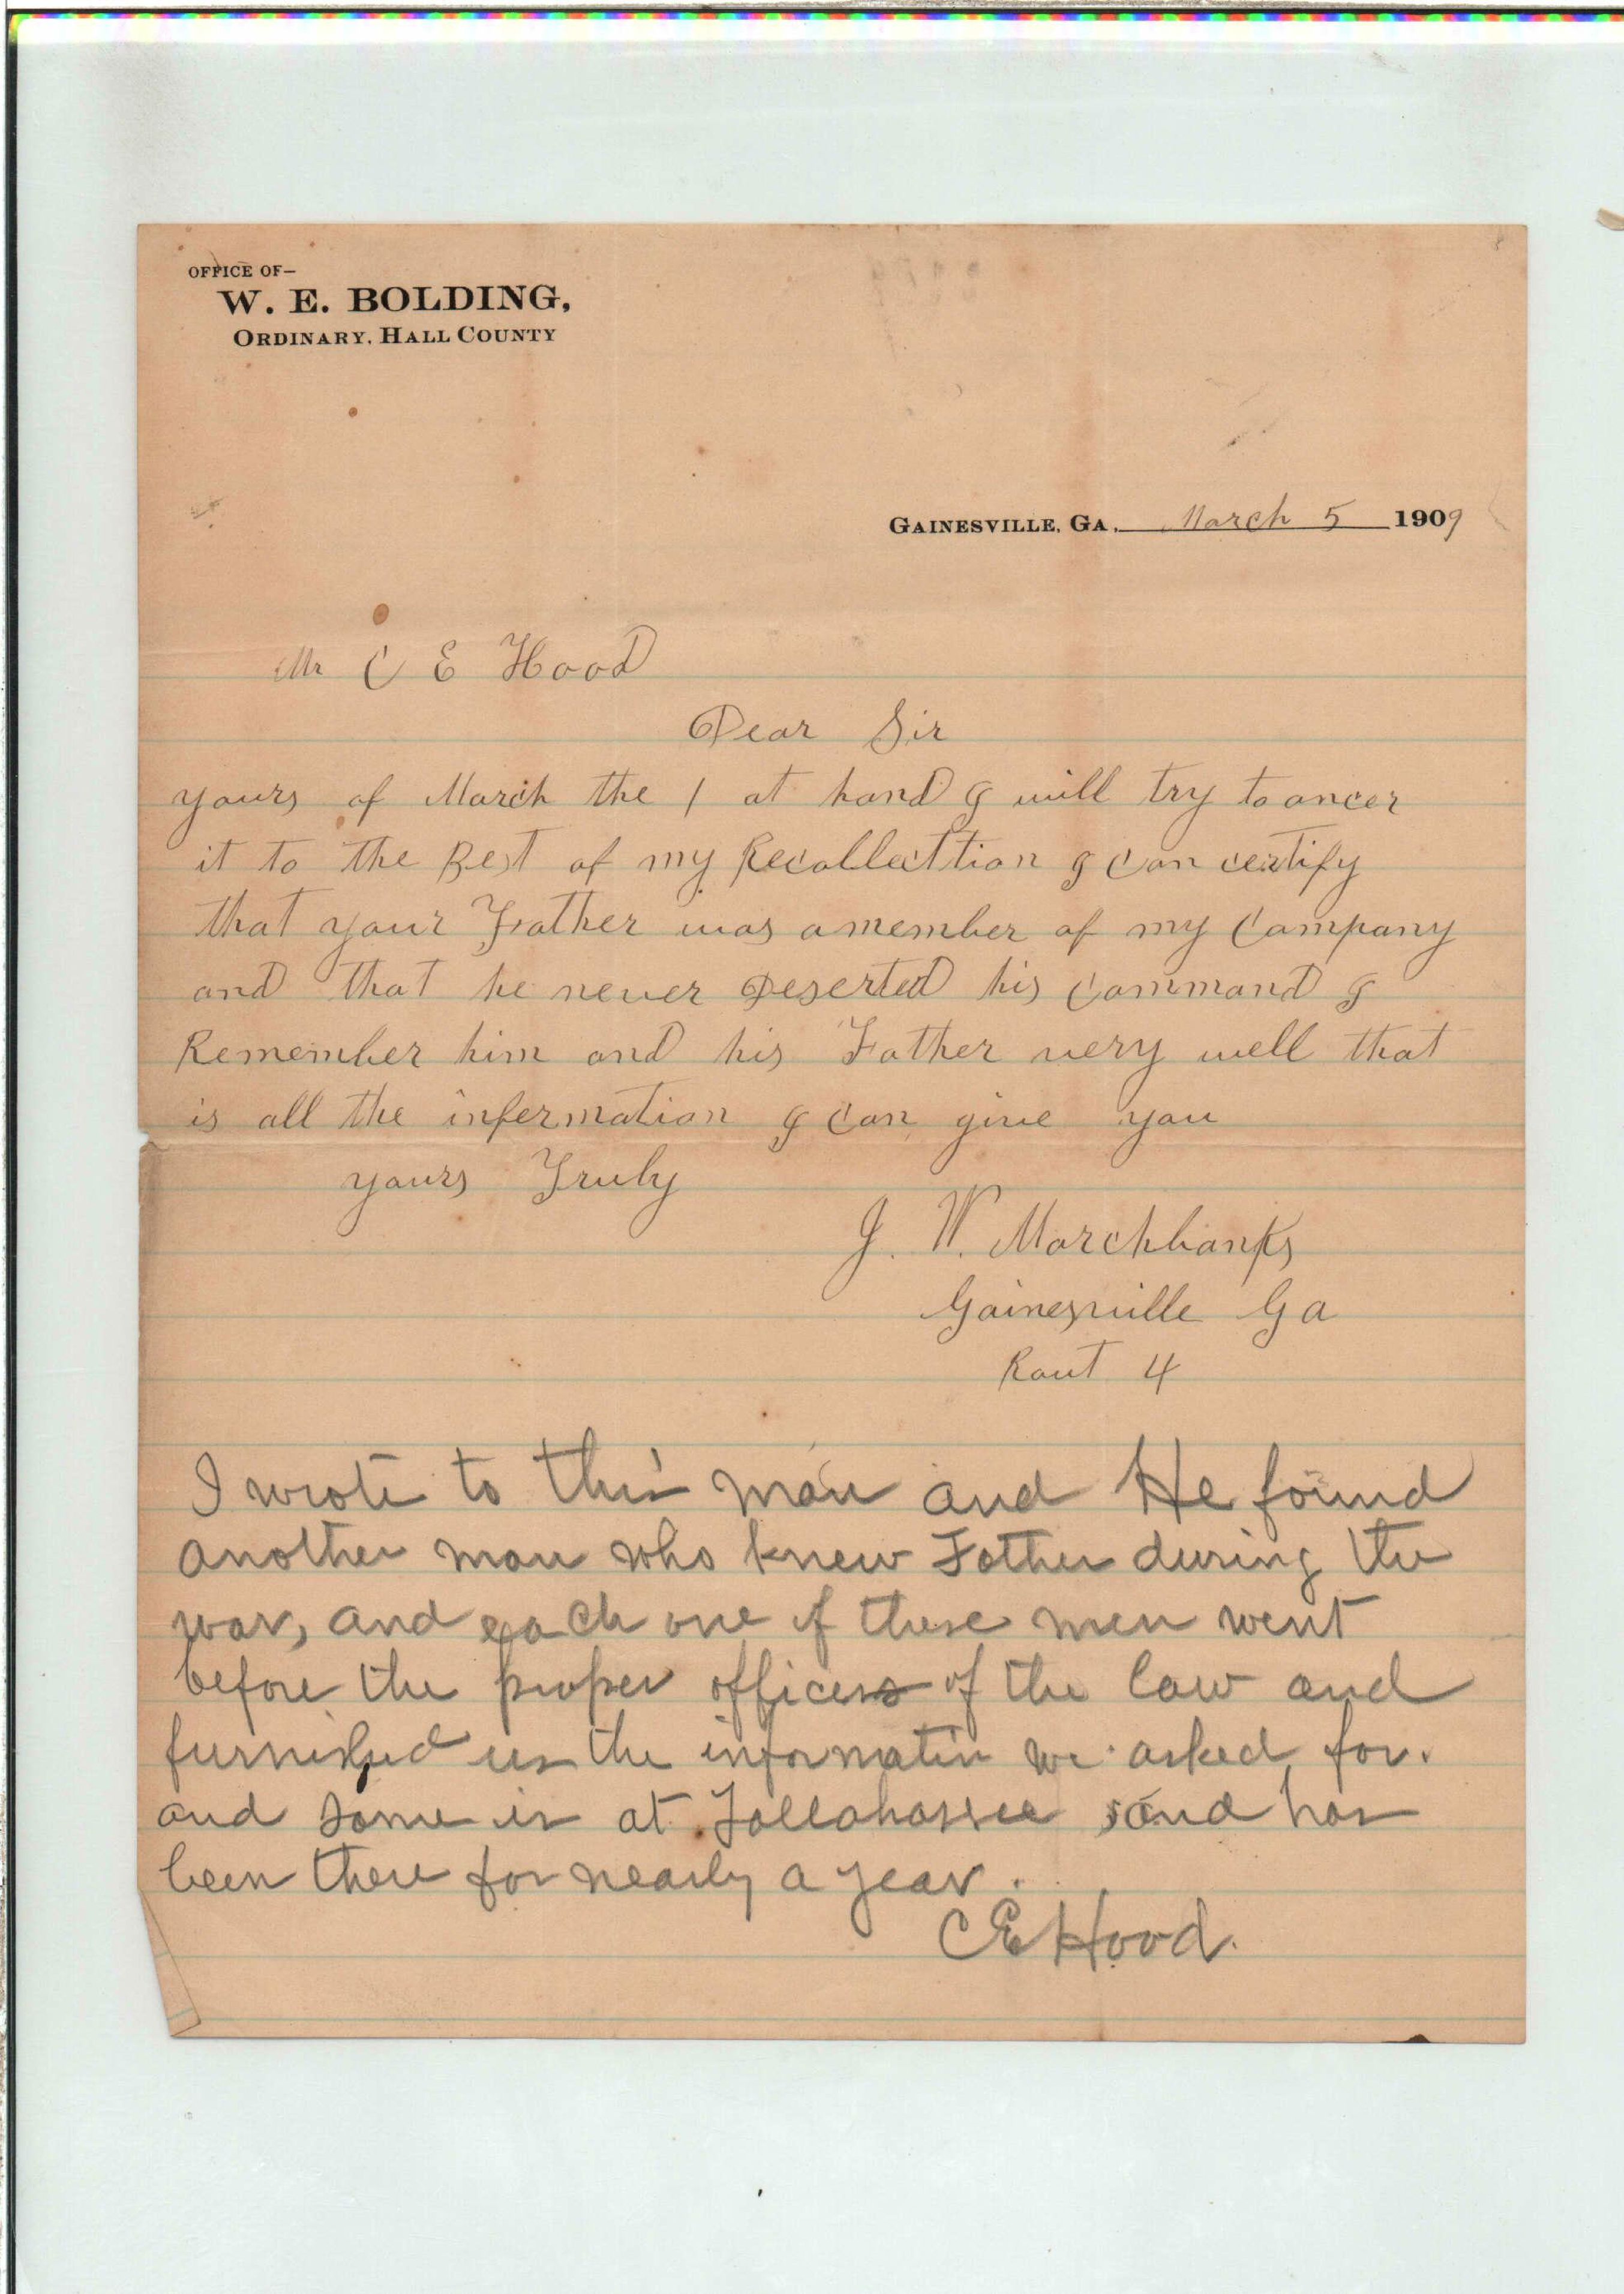 OFFICE OF—
W. E. BOLDING,
ORDINARY, HALL COUNTY
GAINESVILLE, GA. March 5 1909
Mr C E Hood
Dear Sir
yours of March the 1 at hand I will try to ancer
it to the Best of my Recollecttion I can certify
that your Father was a member of my Company
and that he never Deserted his Command I
Remember him and his Father very well that
is all the infermation I can give you
yours Truly
J. W. Marchbanks
Gainesville Ga
Rout 4
I wrote to this man and He found
another man who knew Father during the
war, and each one of these men went
before the proper officers of the law and
furnished us the informatin we asked for.
and same is at Tallahassee and has
been there for nearly a year.
C E Hood.